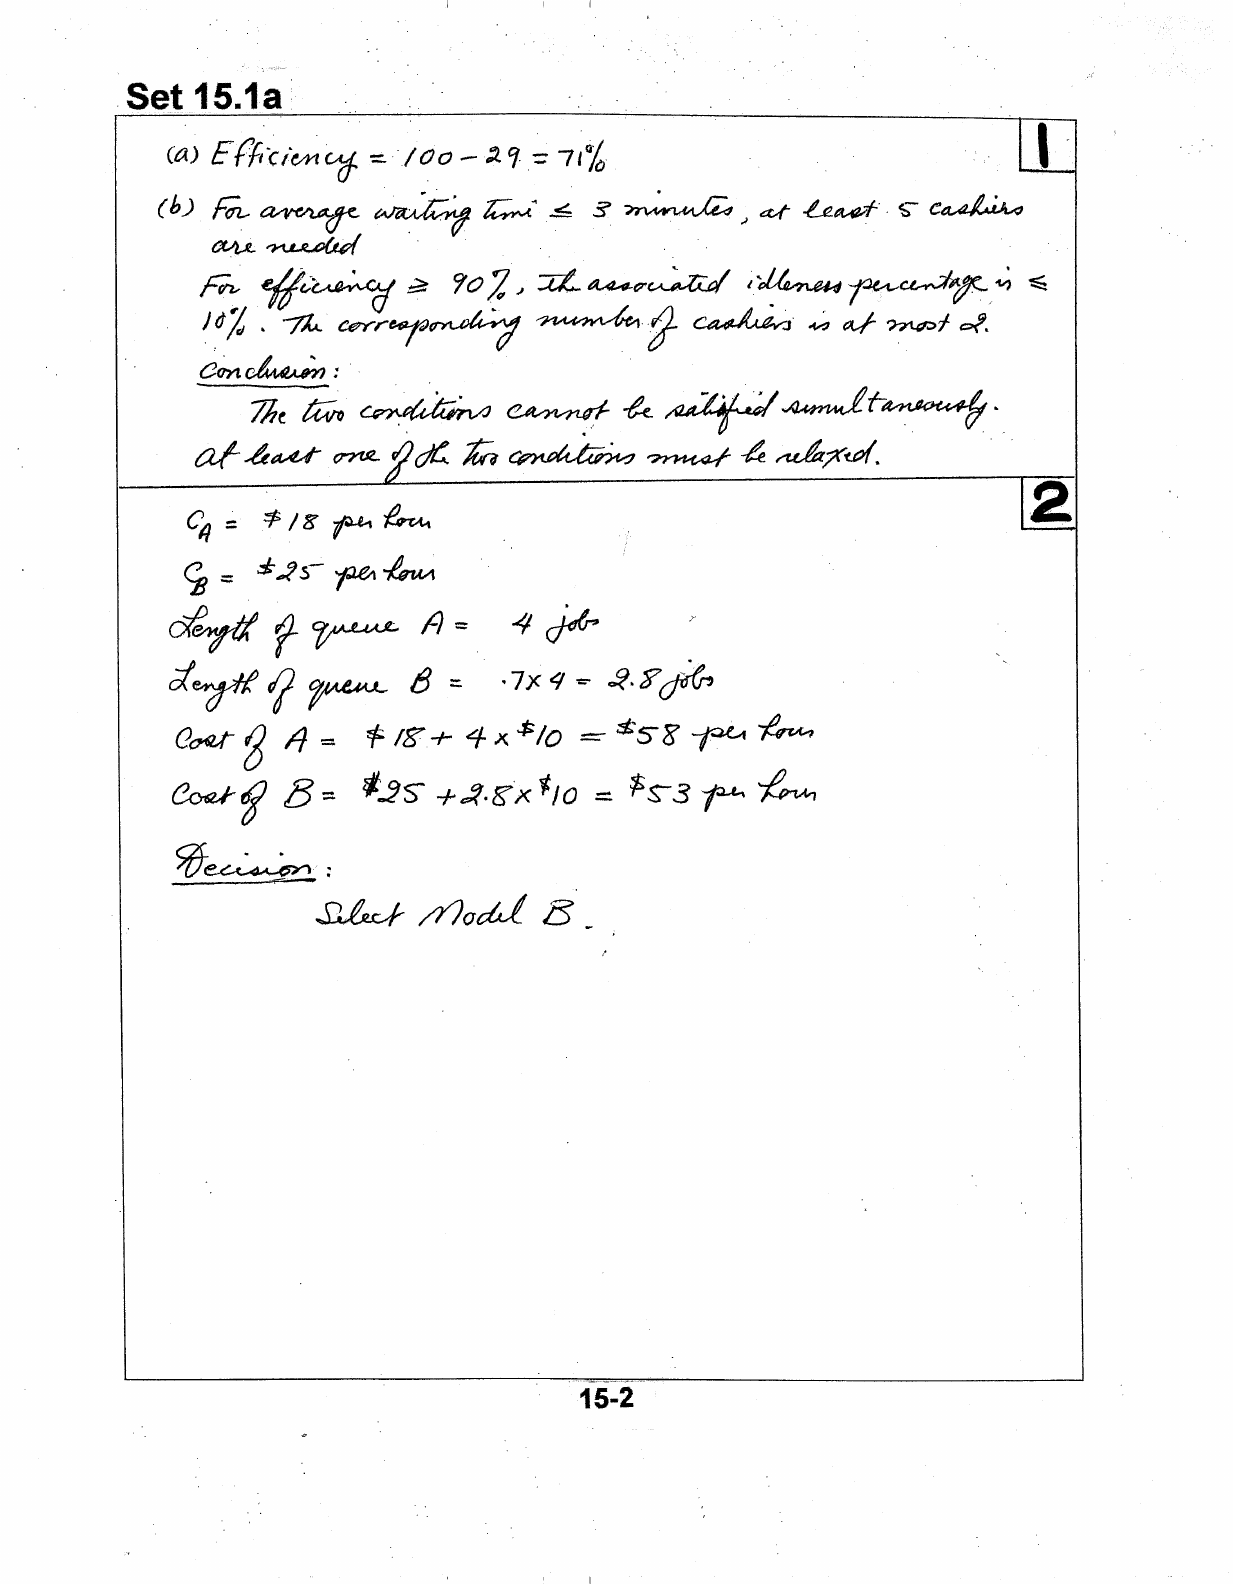 Set 15.1a
1
(a) Efficiency = 100 - 29 = 71%
(b) For average waiting time ≤ 3 minutes, at least 5 cashiers
are needed
For efficiency ≥ 90%, the associated idleness percentage is ≤
10%. The corresponding number of cashiers is at most 2.
Conclusion:
The two conditions cannot be satisfied simultaneously.
At least one of the two conditions must be relaxed.
2
C_A = $18 per hour
C_B = $25 per hour
Length of queue A = 4 jobs
Length of queue B = .7 x 4 = 2.8 jobs
Cost of A = $18 + 4 x $10 = $58 per hour
Cost of B = $25 + 2.8 x $10 = $53 per hour
Decision:
Select Model B.
15-2